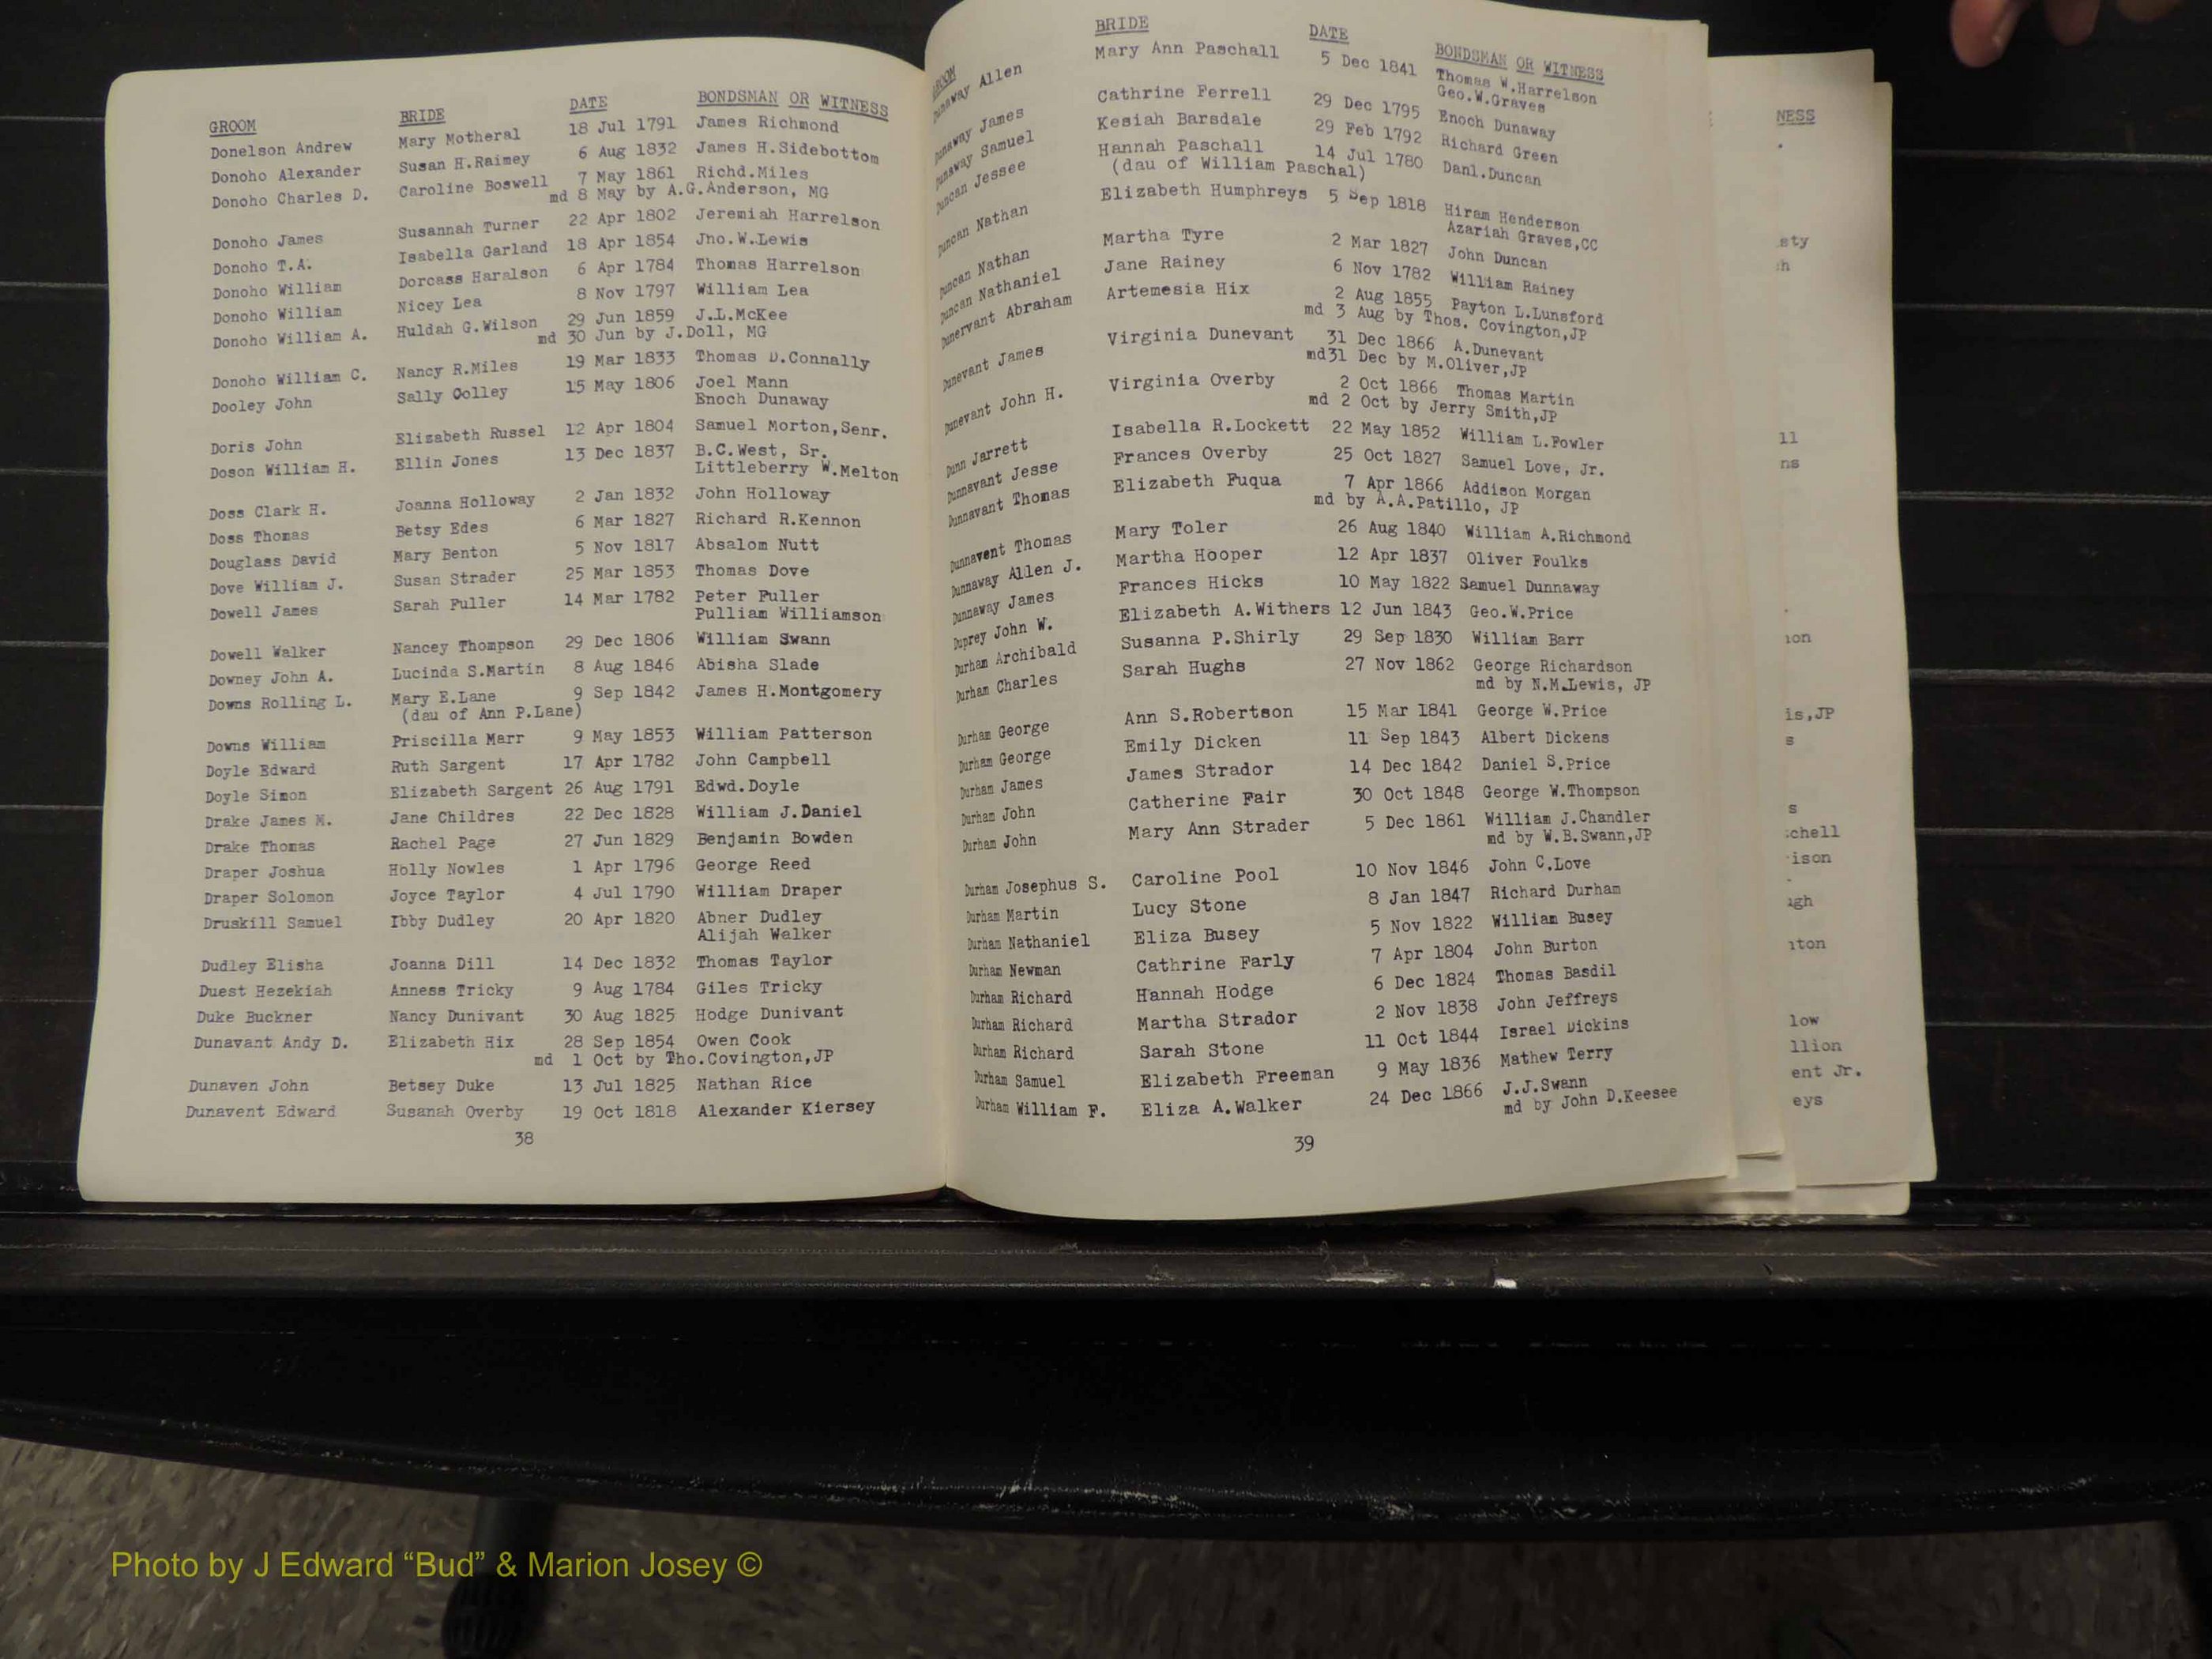 GROOM BRIDE DATE BONDSMAN OR WITNESS
Donelson Andrew Mary Motheral 18 Jul 1791 James Richmond
Donoho Alexander Susan H.Raimey 6 Aug 1832 James H.Sidebottom
Donoho Charles D. Caroline Boswell 7 May 1861 Richd.Miles
md 8 May by A.G.Anderson, MG
Donoho James Susannah Turner 22 Apr 1802 Jeremiah Harrelson
Donoho T.A. Isabella Garland 18 Apr 1854 Jho.W.Lewis
Donoho William Dorcass Haralson 6 Apr 1784 Thomas Harrelson
Donoho William Nicey Lea 8 Nov 1797 William Lea
Donoho William A. Huldah G.Wilson 29 Jun 1859 J.L.McKee
md 30 Jun by J.Doll, MG
Donoho William C. Nancy R.Miles 19 Mar 1833 Thomas D.Connally
Dooley John Sally Colley 15 May 1806 Joel Mann
Enoch Dunaway
Doris John Elizabeth Russel 12 Apr 1804 Samuel Morton,Senr.
Doson William H. Ellin Jones 13 Dec 1837 B.C.West, Sr.
Littleberry W.Melton
Doss Clark H. Joanna Holloway 2 Jan 1832 John Holloway
Doss Thomas Betsy Edes 6 Mar 1827 Richard R.Kennon
Douglass David Mary Benton 5 Nov 1817 Absalom Nutt
Dove William J. Susan Strader 25 Mar 1853 Thomas Dove
Dowell James Sarah Fuller 14 Mar 1782 Peter Fuller
Pulliam Williamson
Dowell Walker Nancey Thompson 29 Dec 1806 William Swann
Downey John A. Lucinda S.Martin 8 Aug 1846 Abisha Slade
Downs Rolling L. Mary E.Lane 9 Sep 1842 James H.Montgomery
(dau of Ann P.Lane)
Downs William Priscilla Marr 9 May 1853 William Patterson
Doyle Edward Ruth Sargent 17 Apr 1782 John Campbell
Doyle Simon Elizabeth Sargent 26 Aug 1791 Edwd.Doyle
Drake James M. Jane Childres 22 Dec 1828 William J.Daniel
Drake Thomas Rachel Page 27 Jun 1829 Benjamin Bowden
Draper Joshua Holly Nowles 1 Apr 1796 George Reed
Draper Solomon Joyce Taylor 4 Jul 1790 William Draper
Druskill Samuel Ibby Dudley 20 Apr 1820 Abner Dudley
Alijah Walker
Dudley Elisha Joanna Dill 14 Dec 1832 Thomas Taylor
Duest Hezekiah Anness Tricky 9 Aug 1784 Giles Tricky
Duke Buckner Nancy Dunivant 30 Aug 1825 Hodge Dunivant
Dunavant Andy D. Elizabeth Hix 28 Sep 1854 Owen Cook
md 1 Oct by Tho.Covington,JP
Dunaven John Betsey Duke 13 Jul 1825 Nathan Rice
Dunavent Edward Susanah Overby 19 Oct 1818 Alexander Kiersey
38
GROOM BRIDE DATE BONDSMAN OR WITNESS
Dunaway Allen Mary Ann Paschall 5 Dec 1841 Thomas W.Harrelson
Geo.W.Graves
Dunaway James Cathrine Ferrell 29 Dec 1795 Enoch Dunaway
Dunaway Samuel Kesiah Barsdale 29 Feb 1792 Richard Green
Duncan Jessee Hannah Paschall 14 Jul 1780 Danl.Duncan
(dau of William Paschal)
Duncan Nathan Elizabeth Humphreys 5 Sep 1818 Hiram Henderson
Azariah Graves,CC
Duncan Nathan Martha Tyre 2 Mar 1827 John Duncan
Duncan Nathaniel Jane Rainey 6 Nov 1782 William Rainey
Dunervant Abraham Artemesia Hix 2 Aug 1855 Payton L.Lunsford
md 3 Aug by Thos. Covington,JP
Dunevant James Virginia Dunevant 31 Dec 1866 A.Dunevant
md31 Dec by M.Oliver,JP
Dunevant John H. Virginia Overby 2 Oct 1866 Thomas Martin
md 2 Oct by Jerry Smith,JP
Dunn Jarrett Isabella R.Lockett 22 May 1852 William L.Fowler
Dunnavant Jesse Frances Overby 25 Oct 1827 Samuel Love, Jr.
Dunnavant Thomas Elizabeth Fuqua 7 Apr 1866 Addison Morgan
md by A.A.Patillo, JP
Dunnavent Thomas Mary Toler 26 Aug 1840 William A.Richmond
Dunnaway Allen J. Martha Hooper 12 Apr 1837 Oliver Foulks
Dunnaway James Frances Hicks 10 May 1822 Samuel Dunnaway
Duprey John W. Elizabeth A.Withers 12 Jun 1843 Geo.W.Price
Durham Archibald Susanna P.Shirly 29 Sep 1830 William Barr
Durham Charles Sarah Hughs 27 Nov 1862 George Richardson
md by N.M.Lewis, JP
Durham George Ann S.Robertson 15 Mar 1841 George W.Price
Durham George Emily Dicken 11 Sep 1843 Albert Dickens
Durham James James Strador 14 Dec 1842 Daniel S.Price
Durham John Catherine Fair 30 Oct 1848 George W.Thompson
Durham John Mary Ann Strader 5 Dec 1861 William J.Chandler
md by W.B.Swann,JP
Durham Josephus S. Caroline Pool 10 Nov 1846 John C.Love
Durham Martin Lucy Stone 8 Jan 1847 Richard Durham
Durham Nathaniel Eliza Busey 5 Nov 1822 William Busey
Durham Newman Cathrine Farly 7 Apr 1804 John Burton
Durham Richard Hannah Hodge 6 Dec 1824 Thomas Basdil
Durham Richard Martha Strador 2 Nov 1838 John Jeffreys
Durham Richard Sarah Stone 11 Oct 1844 Israel Dickins
Durham Samuel Elizabeth Freeman 9 May 1836 Mathew Terry
Durham William F. Eliza A.Walker 24 Dec 1866 J.J.Swann
md by John D.Keesee
39
NESS
sty
h
ll
ns
ion
is,JP
s
s
chell
ison
igh
nton
low
llion
ent Jr.
eys
Photo by J Edward “Bud” & Marion Josey ©